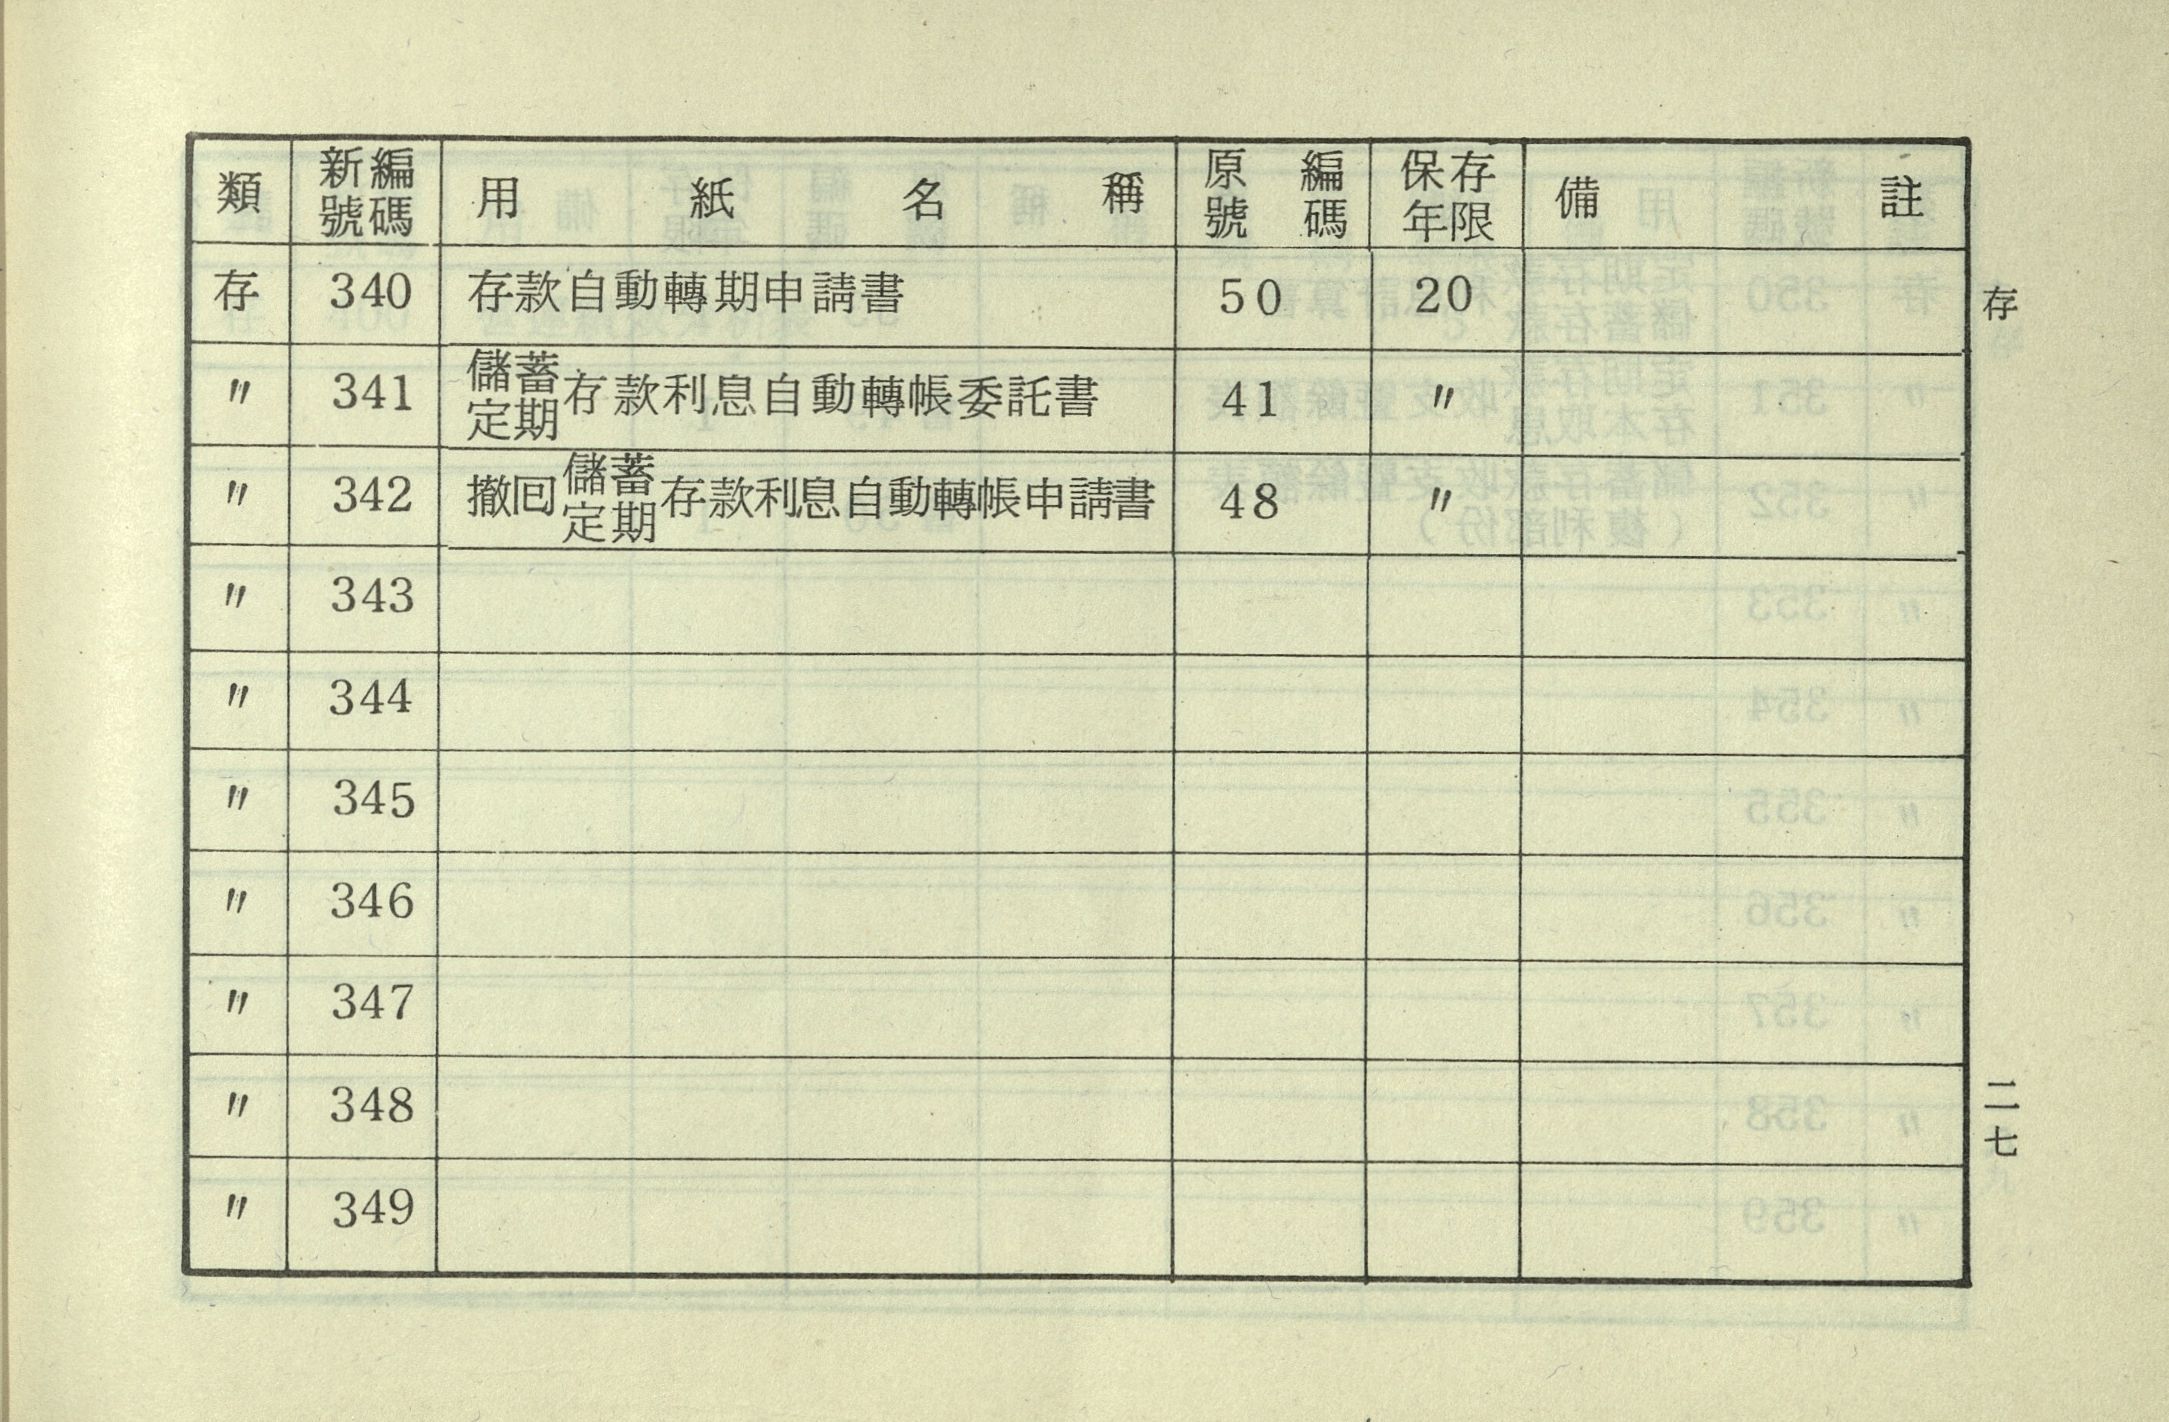 類 新編號碼 用紙名稱 原編號碼 保存年限 備註
存 340 存款自動轉期申請書 50 20
〃 341 儲蓄定期存款利息自動轉帳委託書 41 〃
〃 342 撤回儲蓄定期存款利息自動轉帳申請書 48 〃
〃 343
〃 344
〃 345
〃 346
〃 347
〃 348
〃 349
存
二七